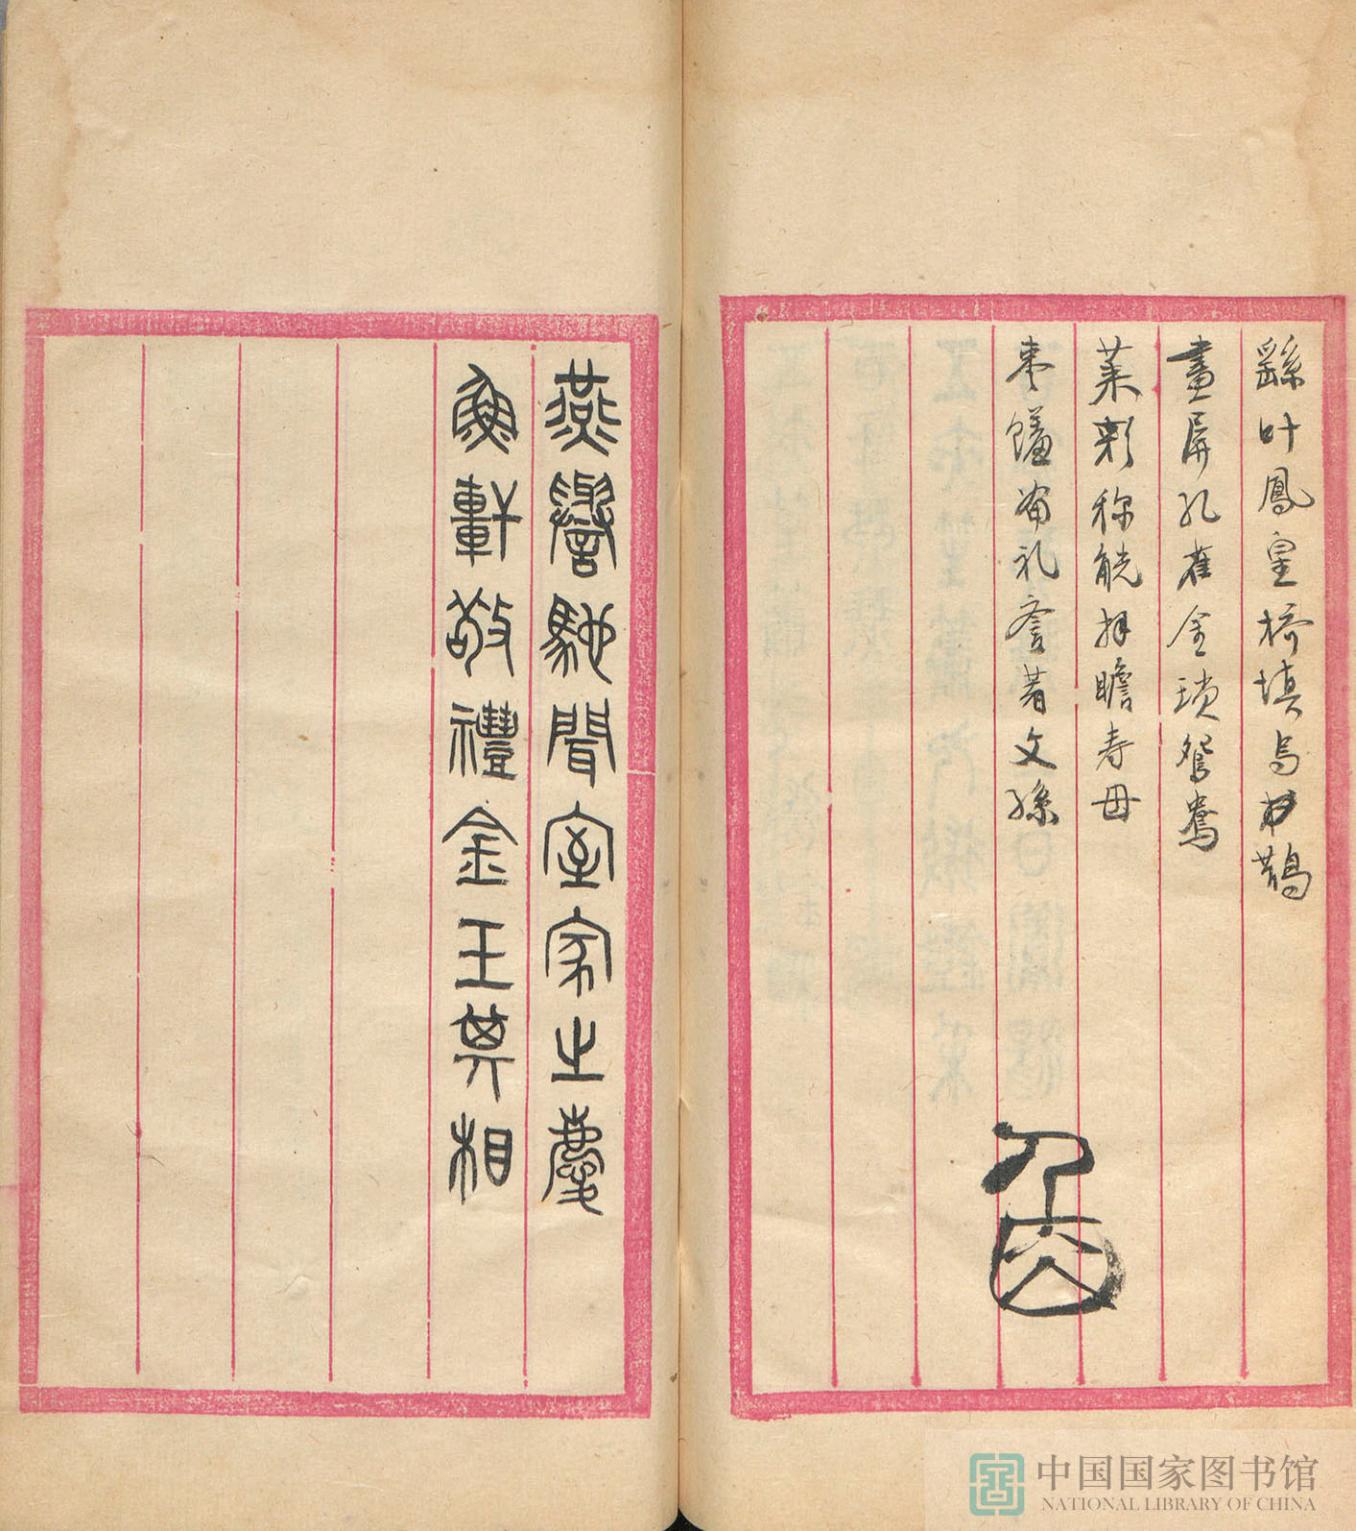 繇叶鳳皇橋填烏鵲
畫屏孔雀金琐鴛鴦
萊彩称觥拜瞻寿母
枣饈 礼 著文孫
燕譽馳聞室家之慶
軒敬禮金玉其相
中国国家图书馆
NATIONAL LIBRARY OF CHINA